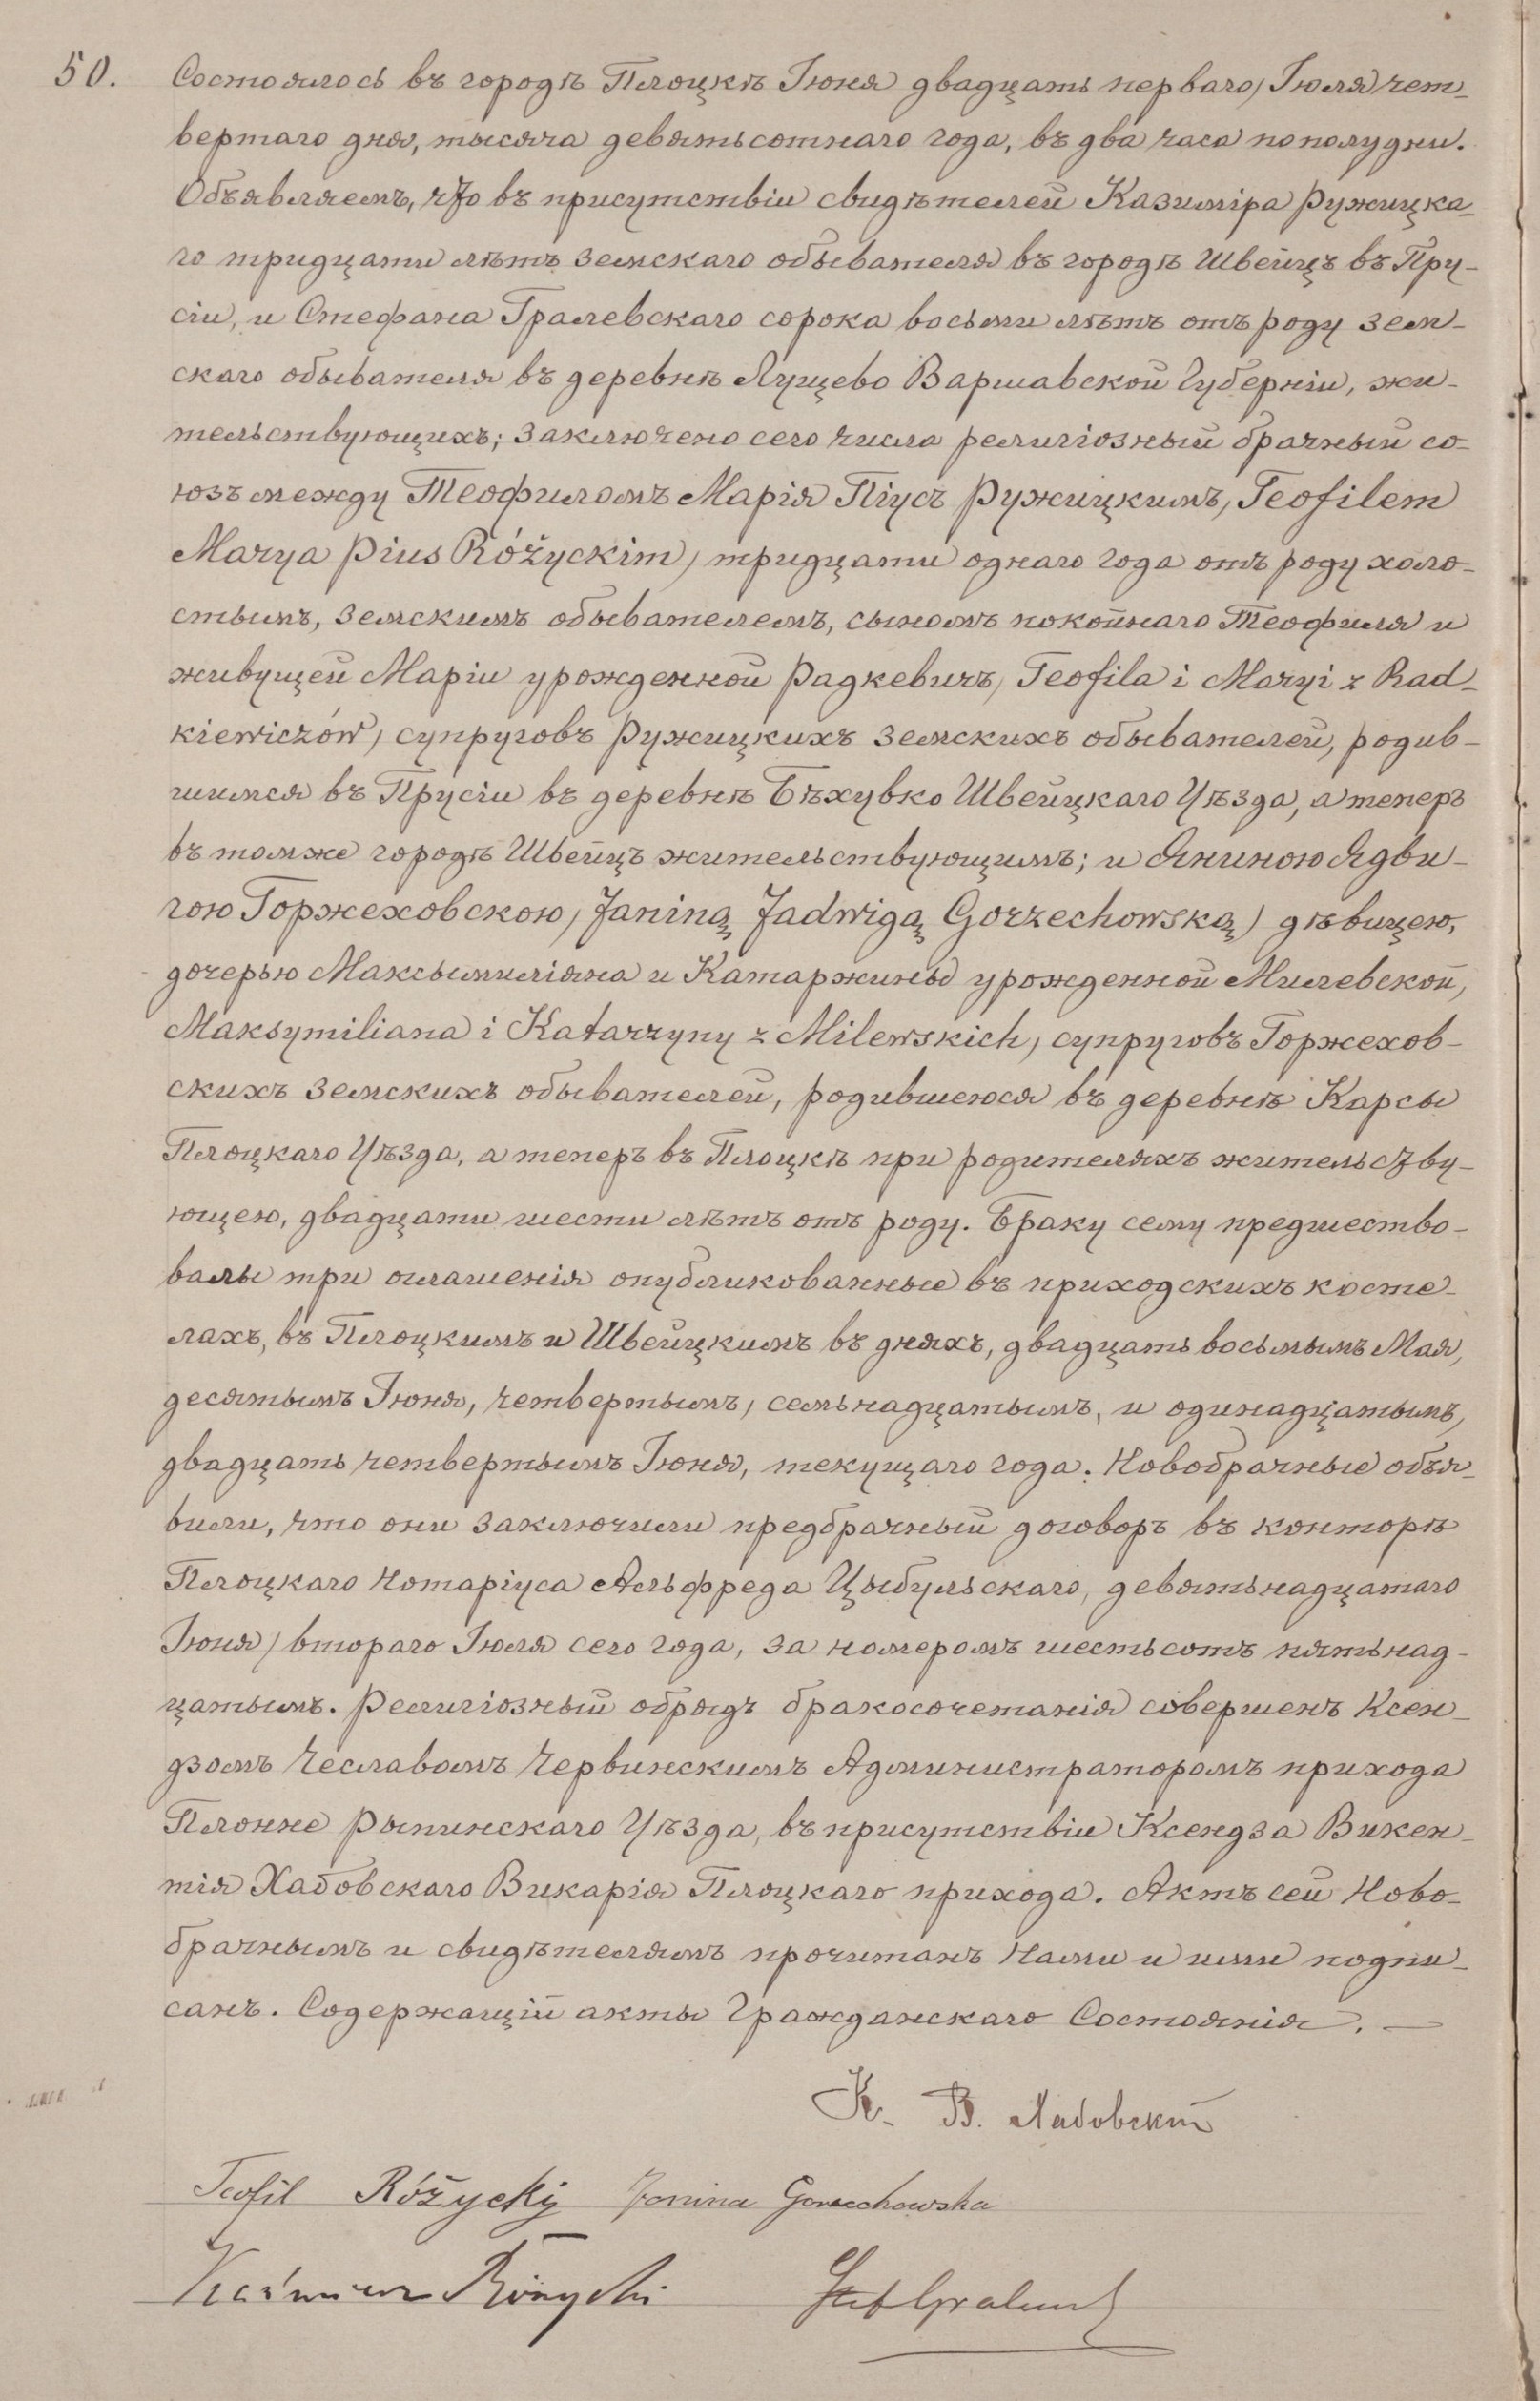 50. Состоялось въ городѣ Плоцкѣ Іюня двадцать перваго / Іюля чет-
вертаго дня, тысяча девятьсотнаго года, въ два часа пополудни.
Объявляемъ, что въ присутствіи свидѣтелей Казиміра Ружицка-
го тридцати лѣтъ земскаго обывателя въ городѣ Швейцъ въ Пру-
сіи, и Стефана Гралевскаго сорока восьми лѣтъ отъ роду зем-
скаго обывателя въ деревнѣ Лущево Варшавской Губерніи, жи-
тельствующихъ; заключено сего числа религіозный брачный со-
юзъ между Теофиломъ Марія Піусъ Ружицкимъ, Teofilem
Marya Pius Różyckim, тридцати однаго года отъ роду холо-
стымъ, земскимъ обывателемъ, сыномъ покойнаго Теофиля и
живущей Маріи урожденной Радкевичъ, Teofila i Maryi z Rad-
kiewiczów, супруговъ Ружицкихъ земскихъ обывателей, родив-
шимся въ Прусіи въ деревнѣ Бѣхувко Швейцкаго Уѣзда, а теперъ
въ томже городѣ Швейцъ жительствующимъ; и Яниною Ядви-
гою Горжеховскою, Janiną Jadwigą Gorzechowską) дѣвицею,
дочерью Максымиліяна и Катаржины урожденной Милевской,
Maksymiliana i Katarzyny z Milewskich, супруговъ Горжехов-
скихъ земскихъ обывателей, родившеюся въ деревнѣ Карсы
Плоцкаго Уѣзда, а теперъ въ Плоцкѣ при родителяхъ жительству-
ющею, двадцати шести лѣтъ отъ роду. Браку сему предшество-
валы три оглашенія опубликованные въ приходскихъ косте-
лахъ, въ Плоцкимъ и Швейцкимъ въ дняхъ, двадцать восьмымъ Мая,
десятымъ Іюня, четвертымъ, семьнадцатымъ, и одинадцатымъ,
двадцать четвертымъ Іюня, текущаго года. Новобрачные объя-
вили, что они заключили предбрачный договоръ въ конторѣ
Плоцкаго Нотаріуса Альфреда Цыбульскаго, девятьнадцатаго
Іюня / втораго Іюля сего года, за номеромъ шестьсотъ пятьнад-
цатымъ. Религіозный обрядъ бракосочетанія совершенъ Ксен-
дзомъ Чеславомъ Червинскимъ Администраторомъ прихода
Плонне Рыпинскаго Уѣзда, въ присутствіи Ксендза Викен-
тія Хабовскаго Викарія Плоцкаго прихода. Актъ сей Ново-
брачнымъ и свидѣтелямъ прочитанъ Нами и ими подпи-
санъ. Содержащій акты Гражданскаго Состоянія. —
К. В. Хабовскій
Teofil Różycki Janina Gorzechowska
Kazimierz Różycki Stef Gralewski